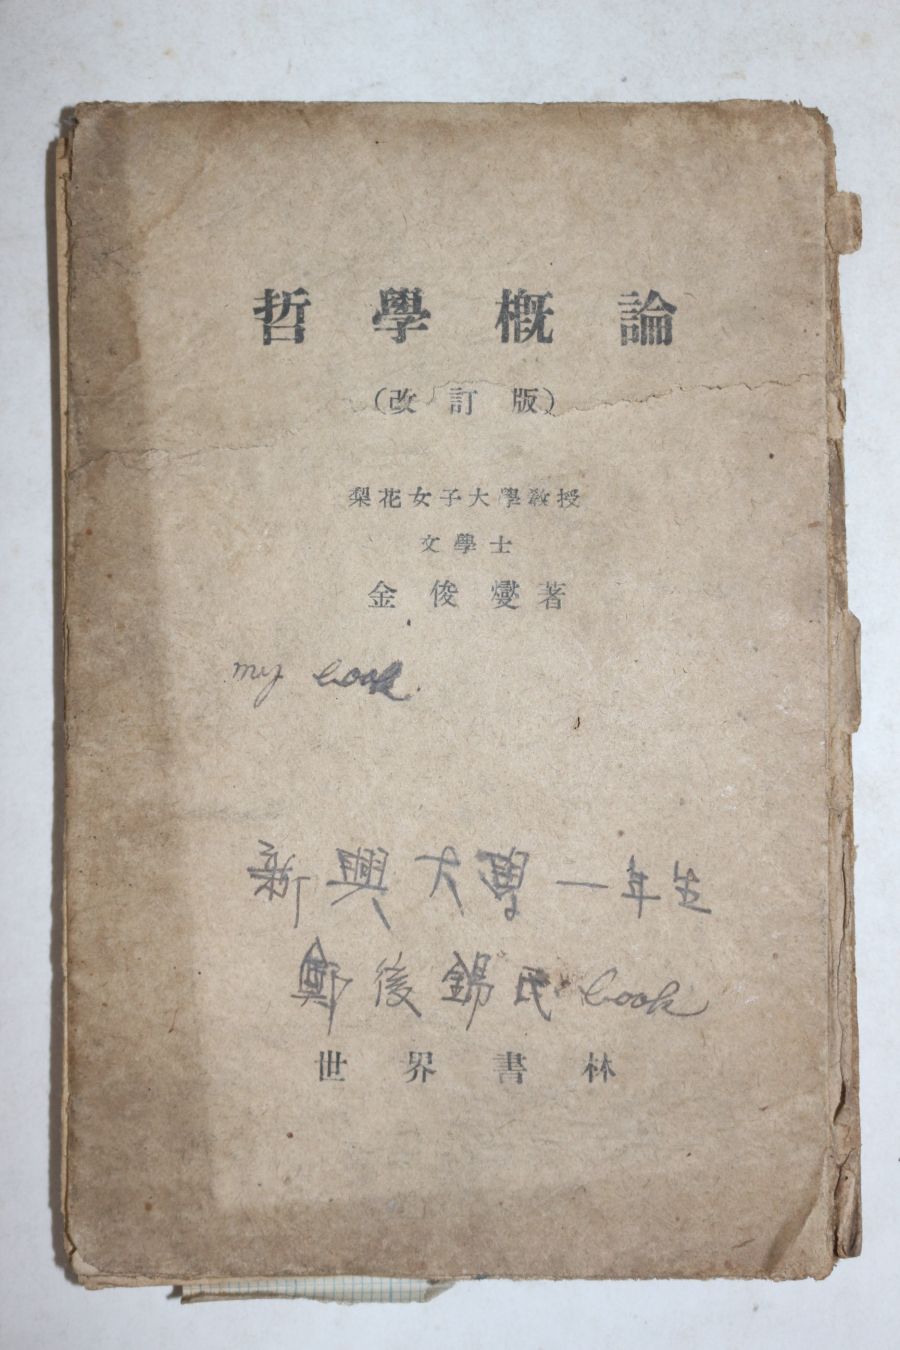 哲學槪論
(改訂版)
梨花女子大學敎授
文學士
金俊燮著
my book.
新興大學一年生
鄭後錫民 book
世界書林